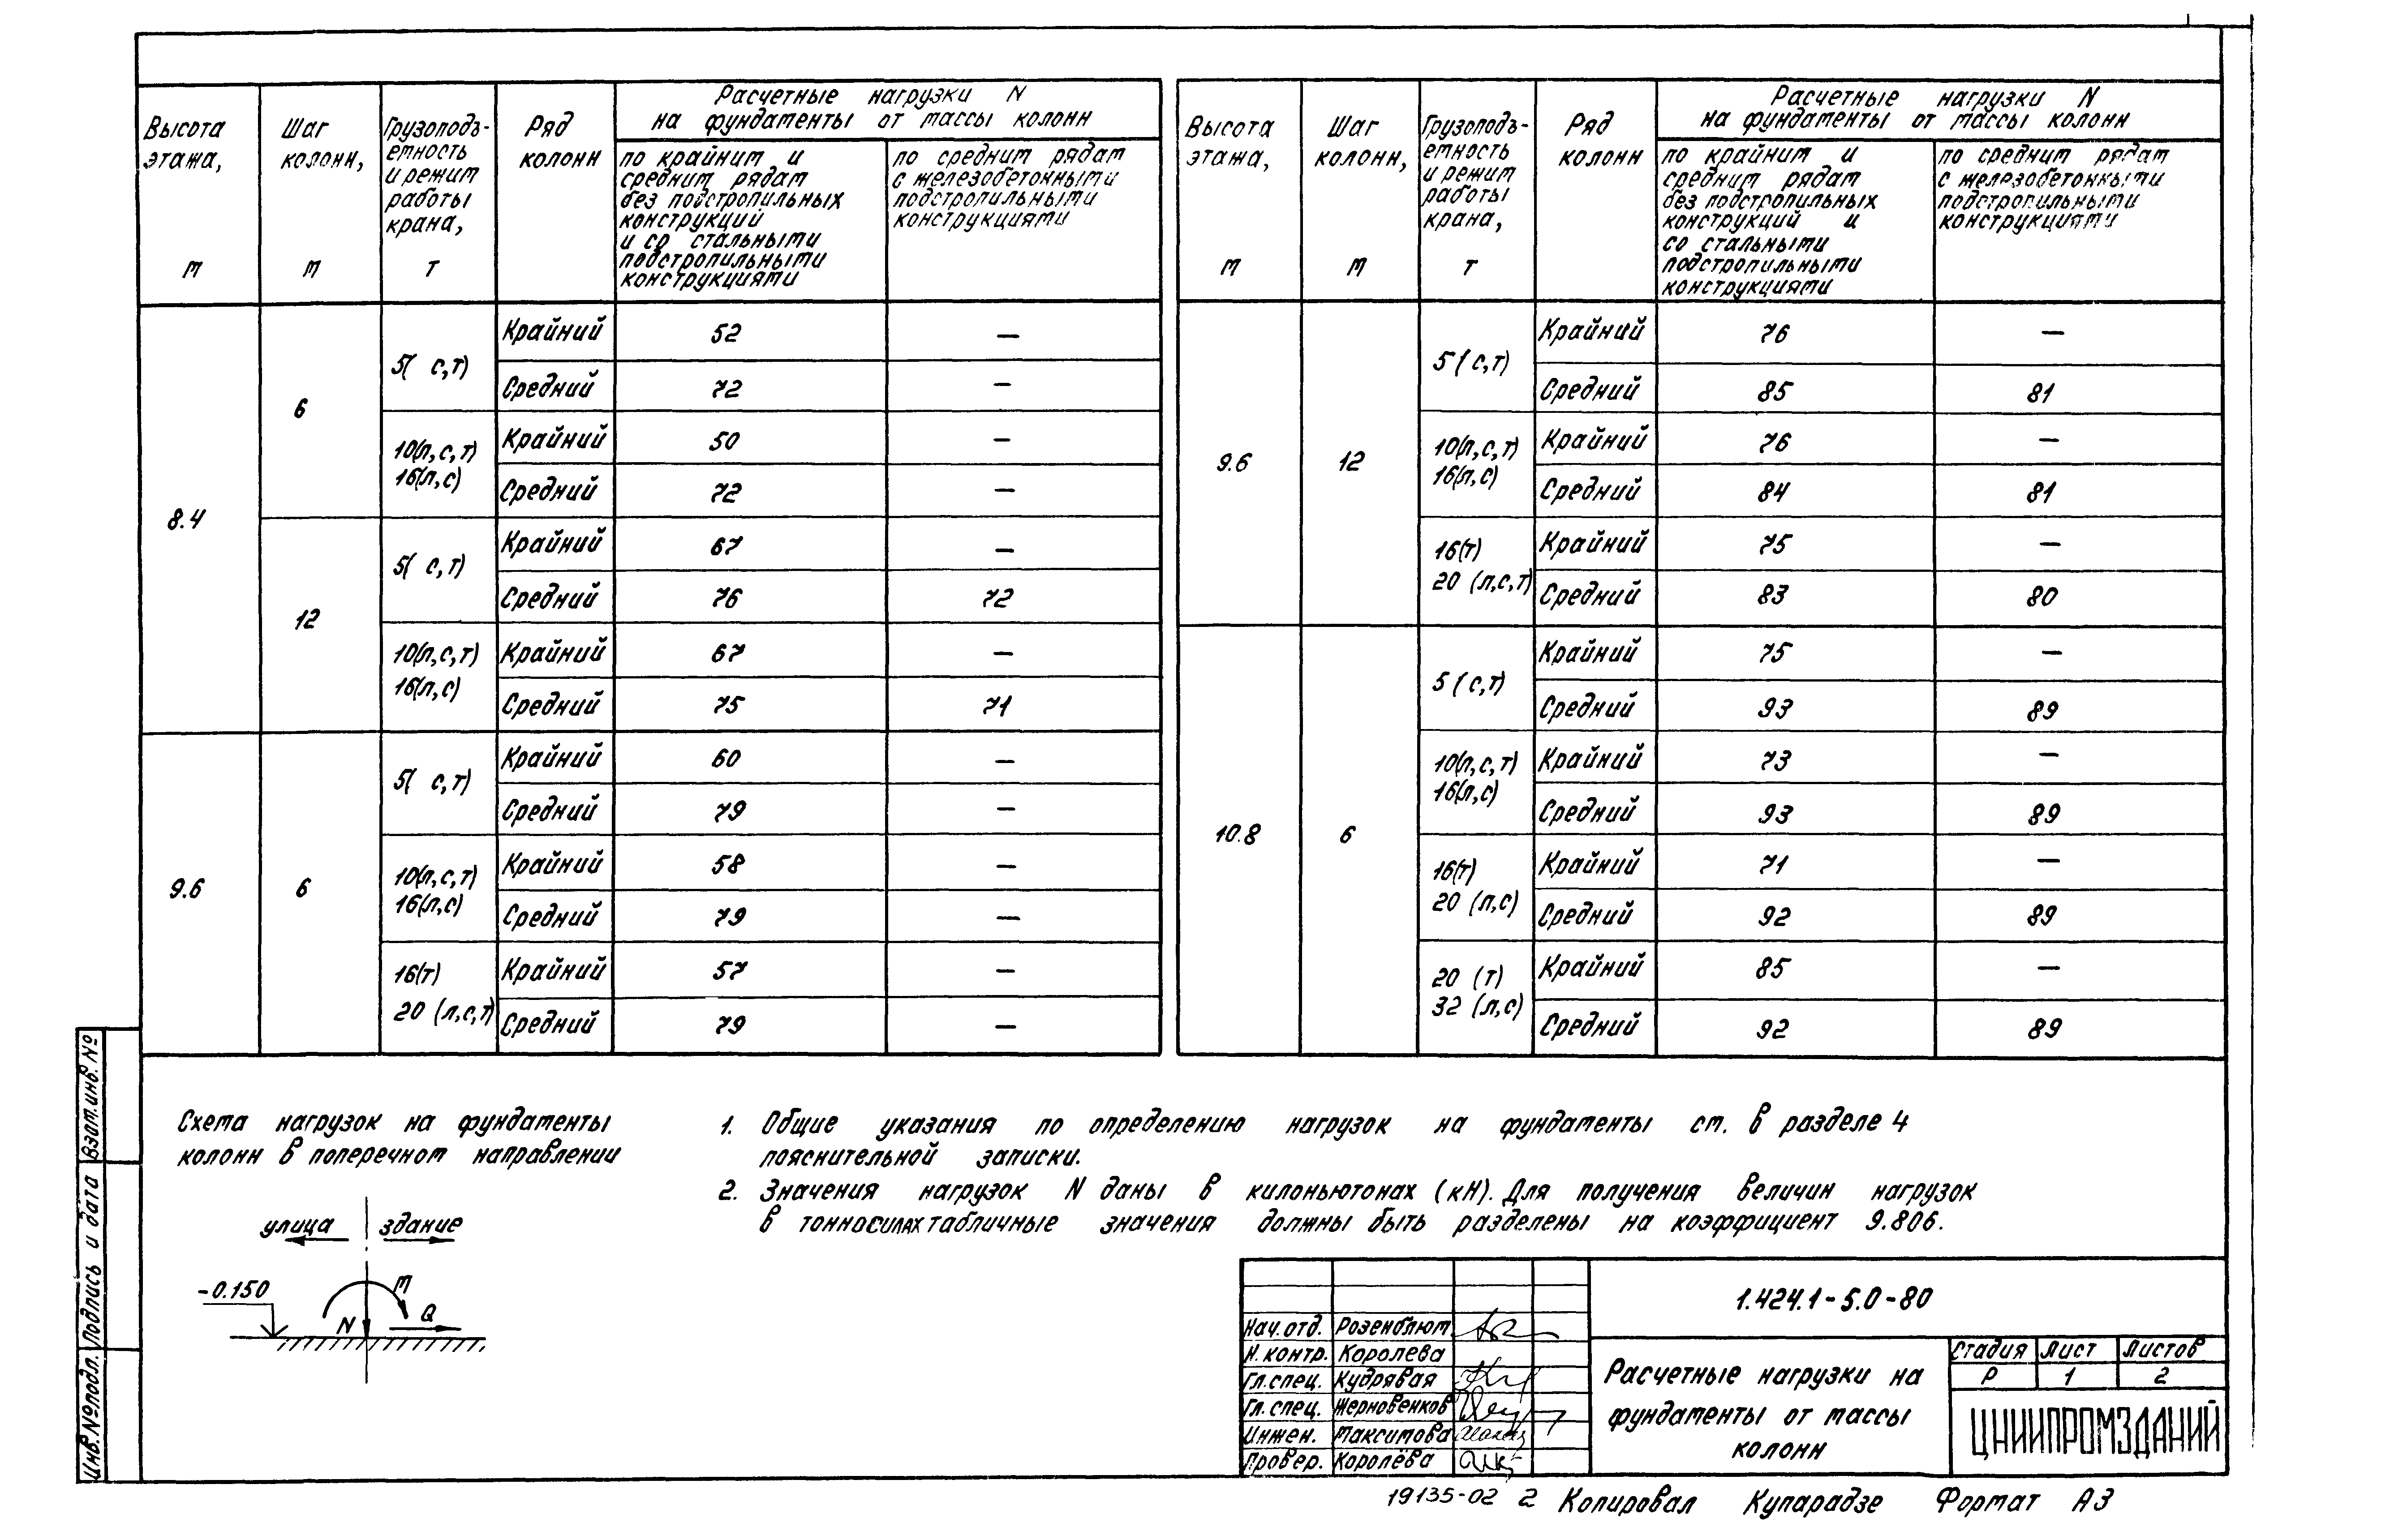 Расчетные нагрузки N
на фундаменты от массы колонн
Высота этажа, м
Шаг колонн, м
Грузоподъ-
емность
и режим
работы
крана,
т
Ряд
колонн
по крайним и
средним рядам
без подстропильных
конструкций
и со стальными
подстропильными
конструкциями
по средним рядам
с железобетонными
подстропильными
конструкциями
8.4
6
5( с,т)
Крайний 52 —
Средний 72 —
10(л,с,т)
16(л,с)
Крайний 50 —
Средний 72 —
12
5( с,т)
Крайний 67 —
Средний 76 72
10(л,с,т)
16(л,с)
Крайний 67 —
Средний 75 71
9.6
6
5( с,т)
Крайний 60 —
Средний 79 —
10(л,с,т)
16(л,с)
Крайний 58 —
Средний 79 —
16(т)
20 (л,с,т)
Крайний 57 —
Средний 79 —
Расчетные нагрузки N
на фундаменты от массы колонн
Высота этажа, м
Шаг колонн, м
Грузоподъ-
емность
и режим
работы
крана,
т
Ряд
колонн
по крайним и
средним рядам
без подстропильных
конструкций и
со стальными
подстропильными
конструкциями
по средним рядам
с железобетонными
подстропильными
конструкциями
9.6
12
5 (с,т)
Крайний 76 —
Средний 85 81
10(л,с,т)
16(л,с)
Крайний 76 —
Средний 84 81
16(т)
20 (л,с,т)
Крайний 75 —
Средний 83 80
10.8
6
5 (с,т)
Крайний 75 —
Средний 93 89
10(л,с,т)
16(л,с)
Крайний 73 —
Средний 93 89
16(т)
20 (л,с)
Крайний 71 —
Средний 92 89
20 (т)
32 (л,с)
Крайний 85 —
Средний 92 89
Схема нагрузок на фундаменты
колонн в поперечном направлении
улица здание
-0.150
M
N
Q
1. Общие указания по определению нагрузок на фундаменты см. в разделе 4
пояснительной записки.
2. Значения нагрузок N даны в килоньютонах (кН). Для получения величин нагрузок
в тонносилах табличные значения должны быть разделены на коэффициент 9.806.
Взам.инв.№
Подпись и дата
Инв.№подл.
Нач.отд. Розенблюм
Н.контр. Королева
Гл.спец. Кудрявая
Гл.спец. Жерновенков
Инжен. Максимова
Провер. Королёва
1.424.1-5.0-80
Расчетные нагрузки на
фундаменты от массы
колонн
Стадия Лист Листов
Р 1 2
ЦНИИПРОМЗДАНИЙ
19135-02 2 Копировал Купарадзе Формат А3